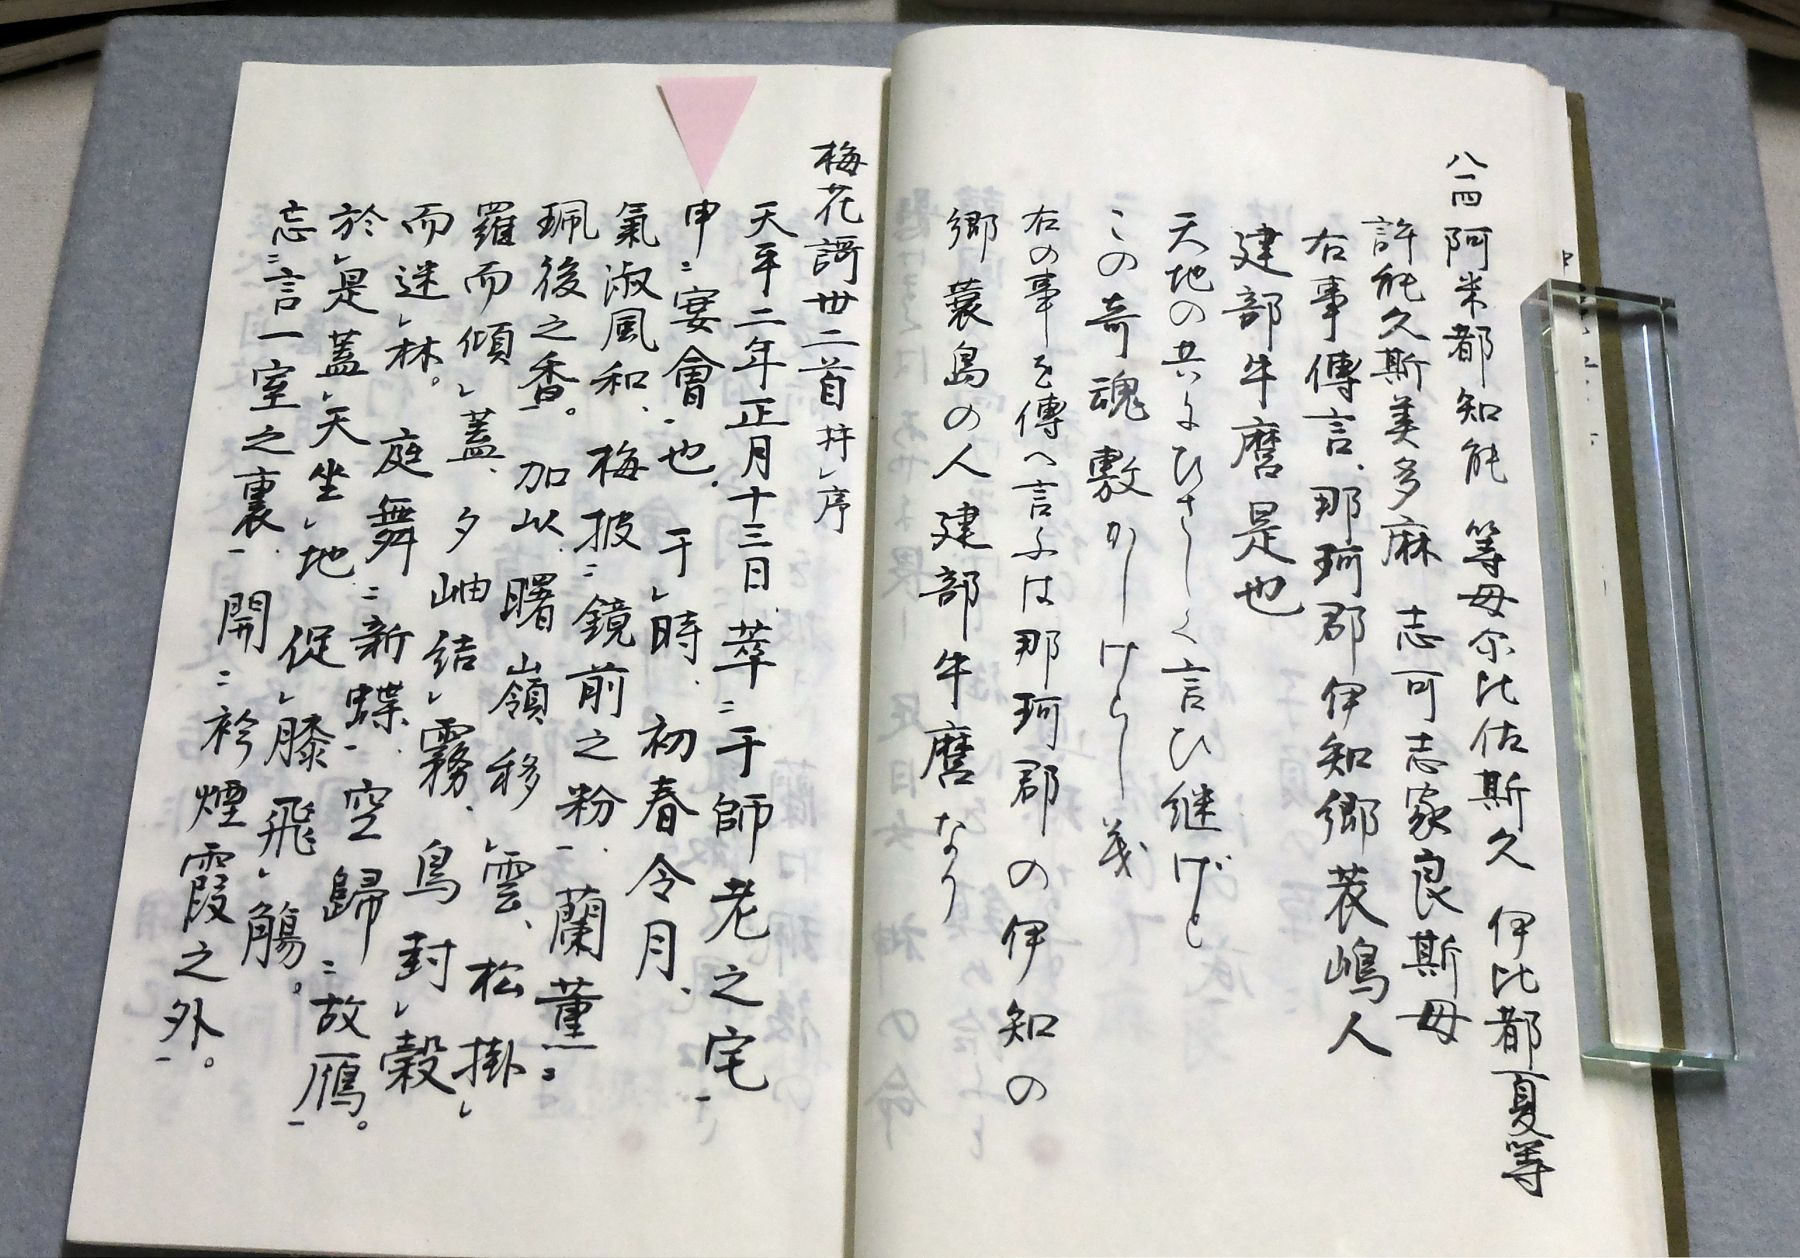 八一四 阿米都知能 等母尓比佐斯久 伊比都夏等
許能久斯美多麻 志可志家良斯母
右事傳言、那珂郡伊知郷蓑嶋人
建部牛麿是也
天地の共にひさしく言ひ継げと
この奇魂敷かしけらし
右の事を傳へ言ふは那珂郡の伊知の
郷蓑島の人建部牛麿なり
梅花謌卅二首并㆑序
天平二年正月十三日、萃㆓于師老之宅㆒
申㆓宴會㆒也。于㆑時、初春令月、
氣淑風和、梅披㆓鏡前之粉㆒、蘭薫㆓
珮後之香㆒。加以、曙嶺移㆑雲、松掛㆑
羅而傾㆑蓋、夕岫結㆑霧、鳥封㆑縠
而迷㆑林。庭舞㆓新蝶㆒、空歸㆓故雁㆒。
於㆑是蓋㆑天坐㆑地、促㆑膝飛㆑觴。
忘㆓言一室之裏㆒、開㆓衿煙霞之外㆒。